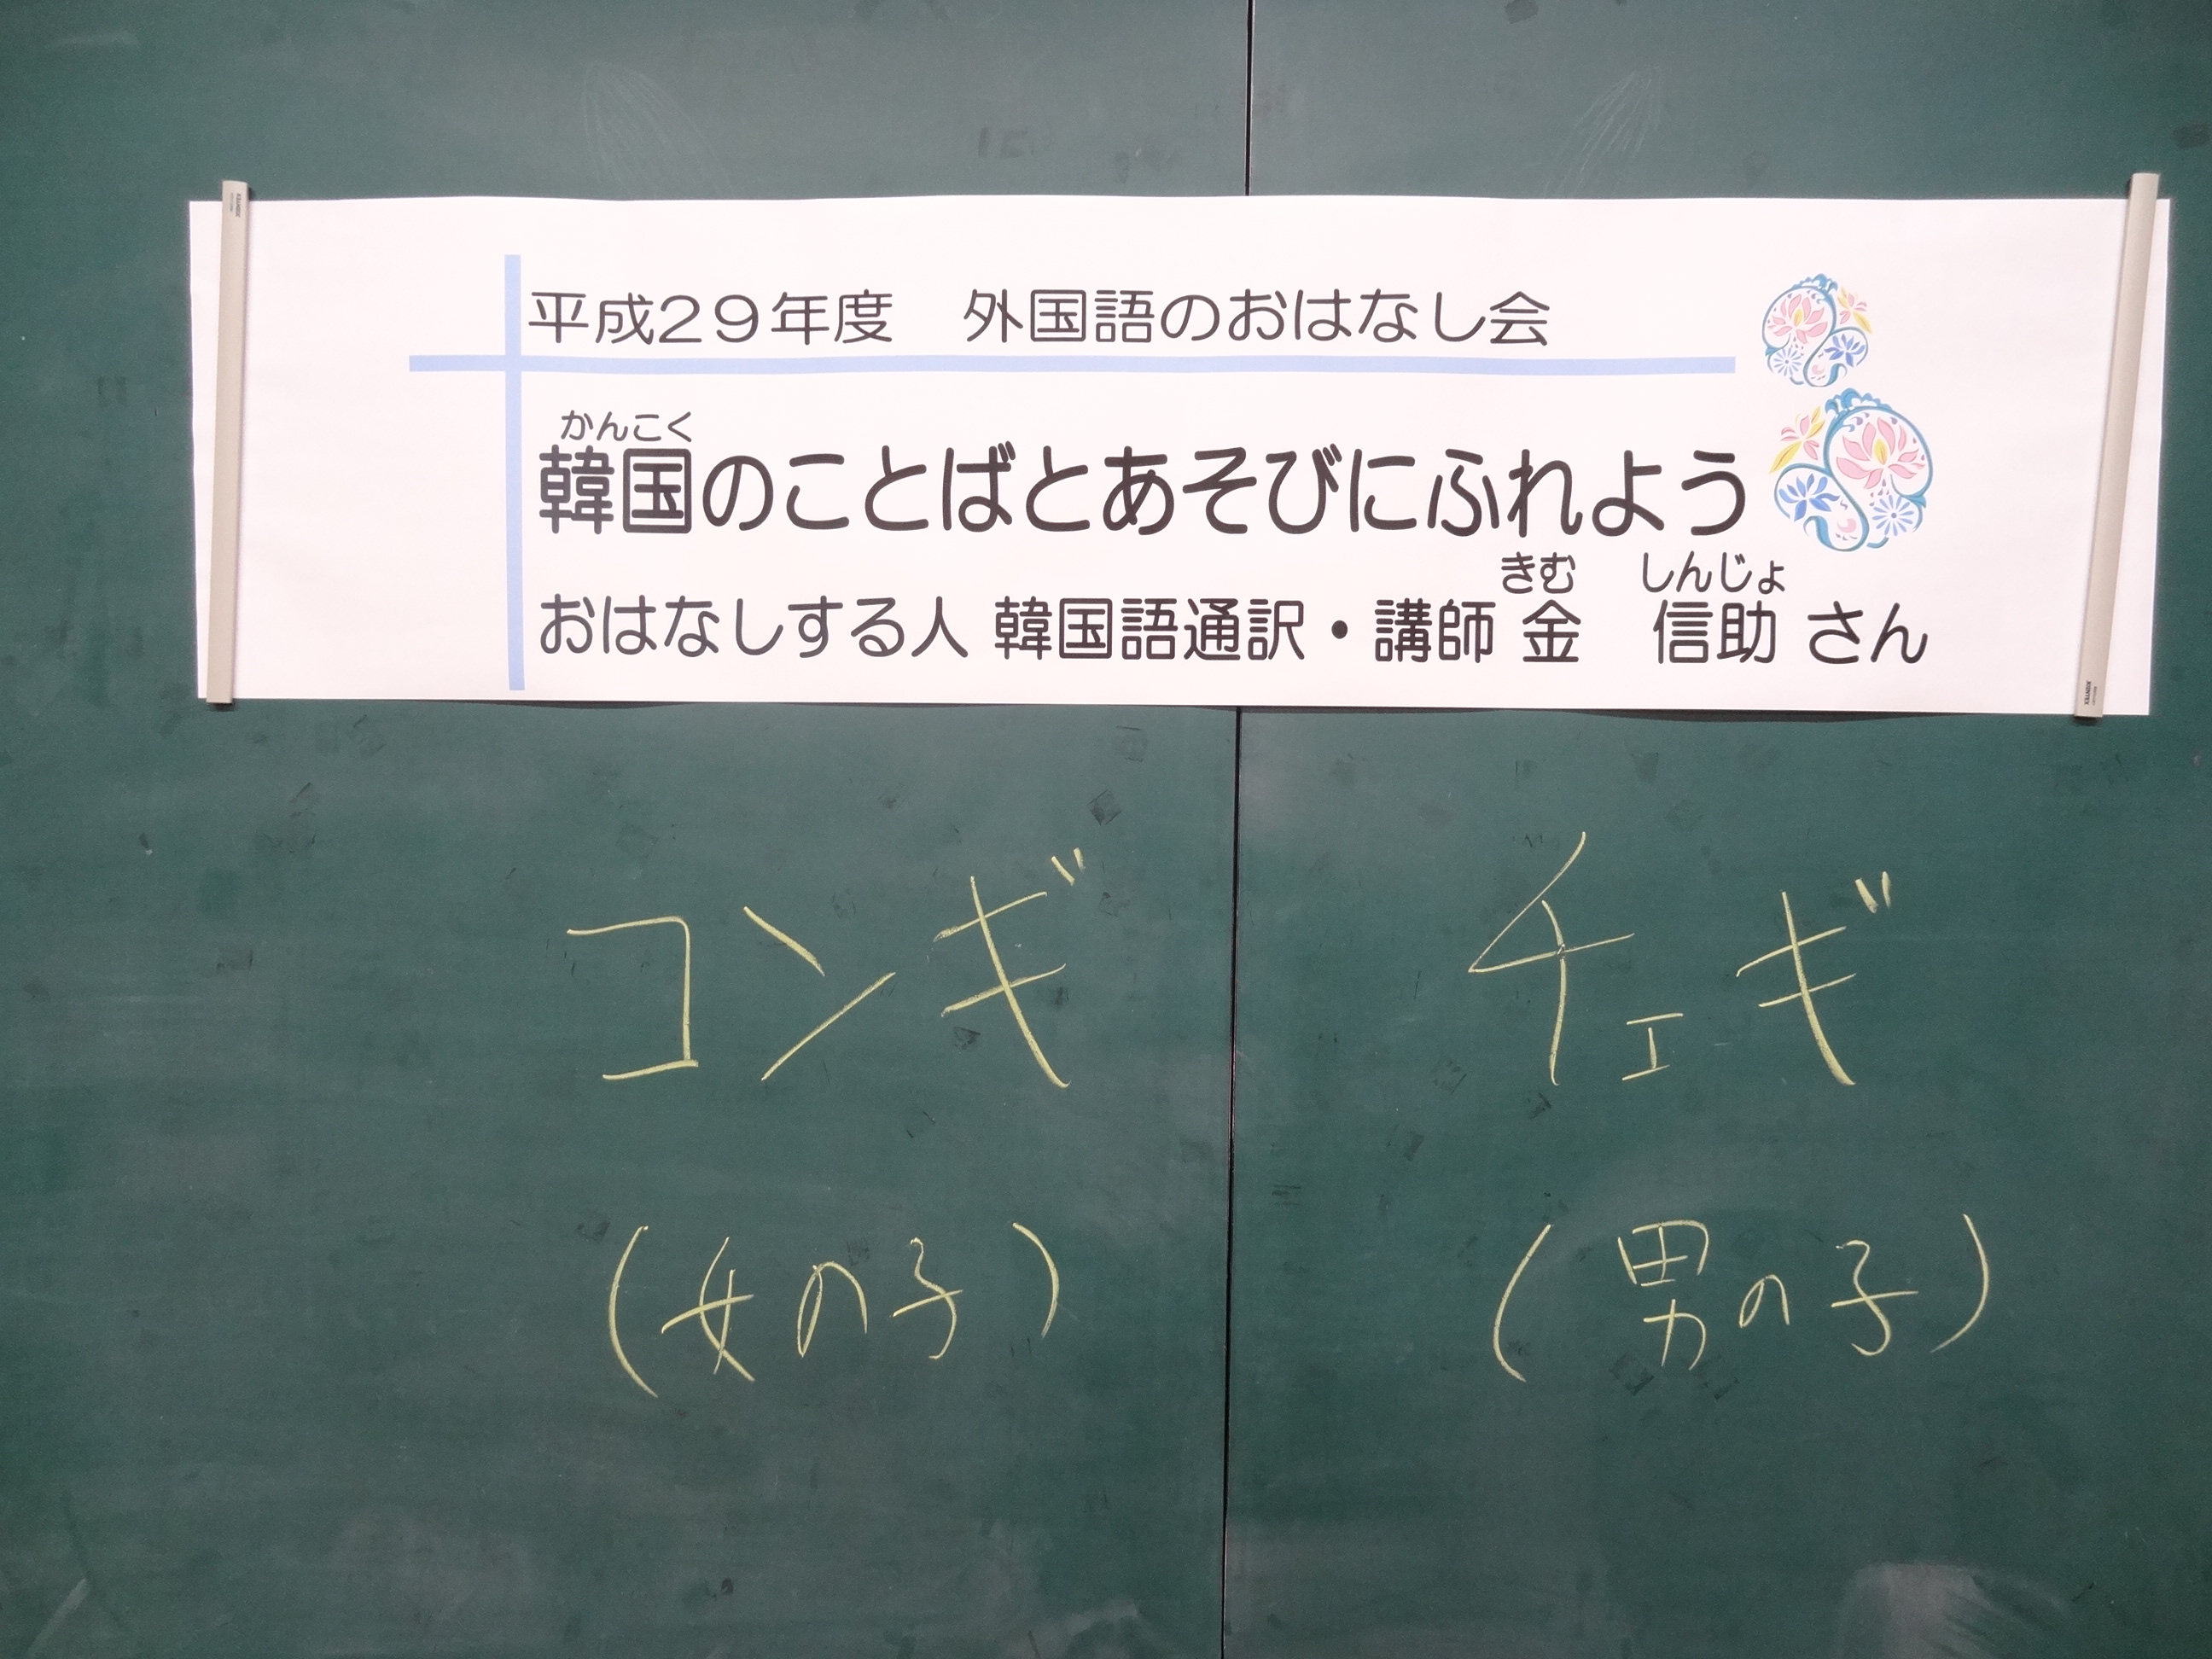 平成２９年度　外国語のおはなし会
かんこく
韓国のことばとあそびにふれよう
きむ　しんじょ
おはなしする人 韓国語通訳・講師 金　信助 さん
コンギ　チェギ
（女の子）　（男の子）